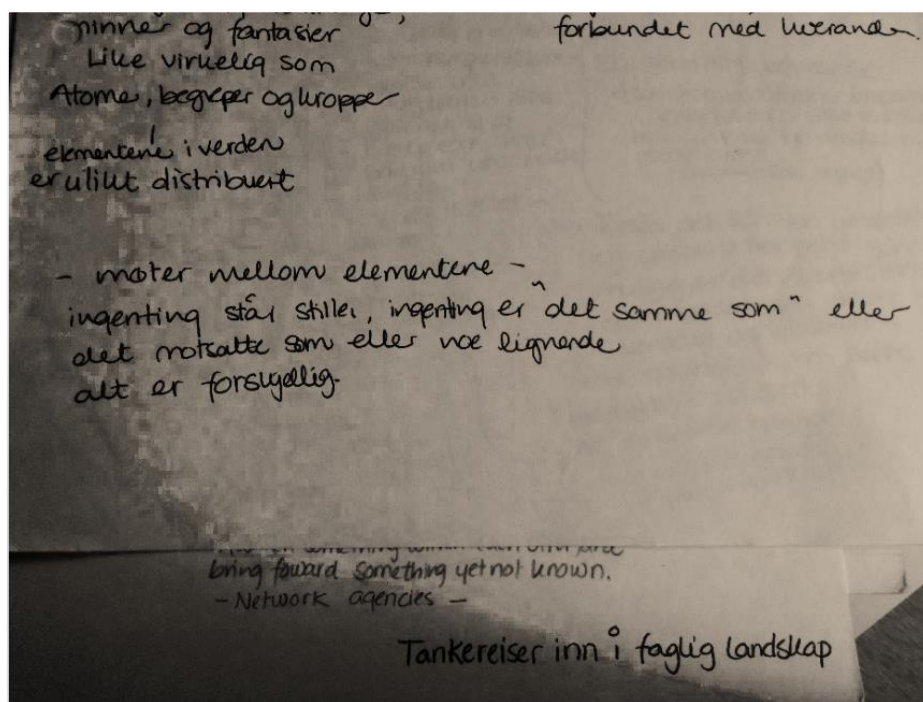 minner og fantasier
Like virkelig som
Atomer, begreper og kropper
elementene i verden
er ulikt distribuert
forbundet med hverandre.
- møter mellom elementene -
ingenting står stille, ingenting er "det samme som" eller
det motsatte som eller noe lignende
alt er forskjellig.
bring foward something yet not known.
- Network agencies -
Tankereiser inn i faglig landskap